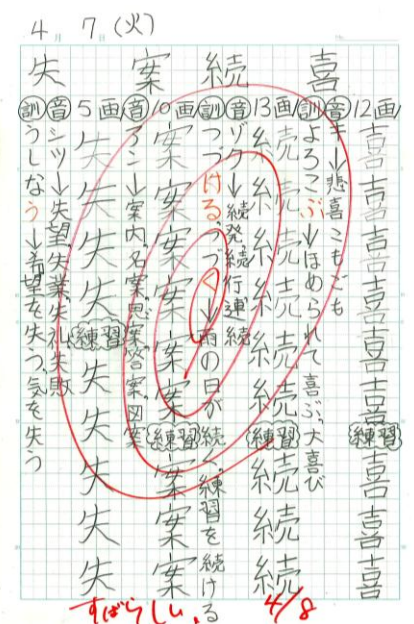 4月 7日(火)
喜
12画
喜喜喜喜喜喜
練習
喜喜喜
音キ→悲喜こもごも
訓よろこぶ→ほめられて喜ぶ、大喜び
続
13画
続続続続続続
練習
続続続
音ゾク→続発、続行、連続
訓つづける、つづく→雨の日が続く、練習を続ける
案
10画
案案案案案案
練習
案案案
音アン→案内、名案、思案、答案、図案
失
5画
失失失失
練習
失失失失失
音シツ→失望、失業、失礼、失敗
訓うしなう→希望を失う、気を失う
すばらしい。
4/8